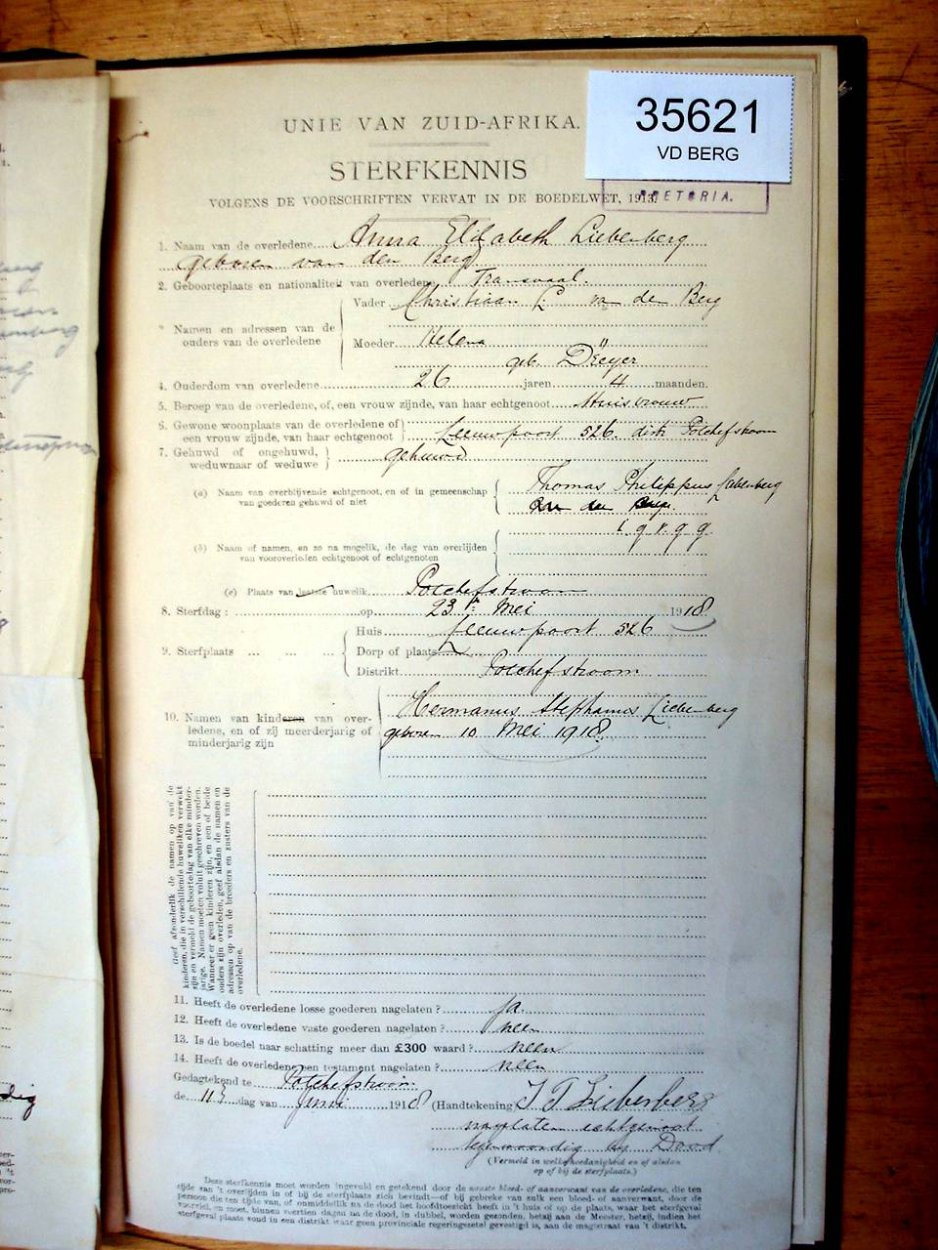 35621
VD BERG
UNIE VAN ZUID-AFRIKA.
STERFKENNIS
PRETORIA.
VOLGENS DE VOORSCHRIFTEN VERVAT IN DE BOEDELWET, 1913.
1. Naam van de overledene Anna Elizabeth Liebenberg
geboren van den Berg
2. Geboorteplaats en nationaliteit van overledene Transvaal.
Vader Christiaan L van den Berg
Namen en adressen van de
ouders van de overledene
Moeder Helena
geb. Dreyer
4. Ouderdom van overledene 26 jaren 4 maanden.
5. Beroep van de overledene, of, een vrouw zijnde, van haar echtgenoot Huisvrouw
6. Gewone woonplaats van de overledene of
een vrouw zijnde, van haar echtgenoot Leeuwpoort 526. distr Potchefstroom
7. Gehuwd of ongehuwd,
weduwnaar of weduwe gehuwd
(a) Naam van overblijvende echtgenoot, en of in gemeenschap
van goederen gehuwd of niet
Thomas Philippus Liebenberg
(b) Naam of namen, en zo na mogelik, de dag van overlijden
van vooroverleden echtgenoot of echtgenoten
(c) Plaats van laatste huwelik Potchefstroom
8. Sterfdag: op 23 Mei 1918
Huis Leeuwpoort 526
9. Sterfplaats ... ... ... Dorp of plaats
Distrikt Potchefstroom
10. Namen van kinderen van over-
ledene, en of zij meerderjarig of
minderjarig zijn
Hermanus Stephanus Liebenberg
geboren 10 Mei 1918.
(Geef afzonderlik de namen op van de
kinderen, die in verschillende huweliken verwekt
zijn en vermeld de geboortedag van elke minder-
jarige. Namen moeten voluit geschreven worden.
Wanneer er geen kinderen zijn, en een of beide
ouders zijn overleden, geef alsdan de namen en
adressen op van de broeders en zusters van de
overledene.
11. Heeft de overledene losse goederen nagelaten? Ja.
12. Heeft de overledene vaste goederen nagelaten? neen
13. Is de boedel naar schatting meer dan £300 waard? neen
14. Heeft de overledene een testament nagelaten? neen
Gedagtekend te Potchefstroom
de 11 dag van Juni 1918 (Handtekening) T P Liebenberg
nagelaten echtgenoot
tegenwoordig by Dood
(Vermeld in welke hoedanigheid en of alsdan
op of bij de sterfplaats.)
Deze sterfkennis moet worden ingevuld en getekend door de naaste bloed- of aanverwant van de overledene, die ten
tijde van 't overlijden in of bij de sterfplaats zich bevindt—of bij gebreke van zulk een bloed- of aanverwant, door de
persoon die ten tijde van, of onmiddellik na de dood het hoofdtoezicht heeft in 't huis of op de plaats, waar het sterfgeval
voorviel, en moet, binnen veertien dagen na de dood, in dubbel, worden gezonden, hetzij aan de Meester, hetzij, indien het
sterfgeval plaats vond in een distrikt waar geen provinciale regeringszetel gevestigd is, aan de magistraat van 't distrikt.